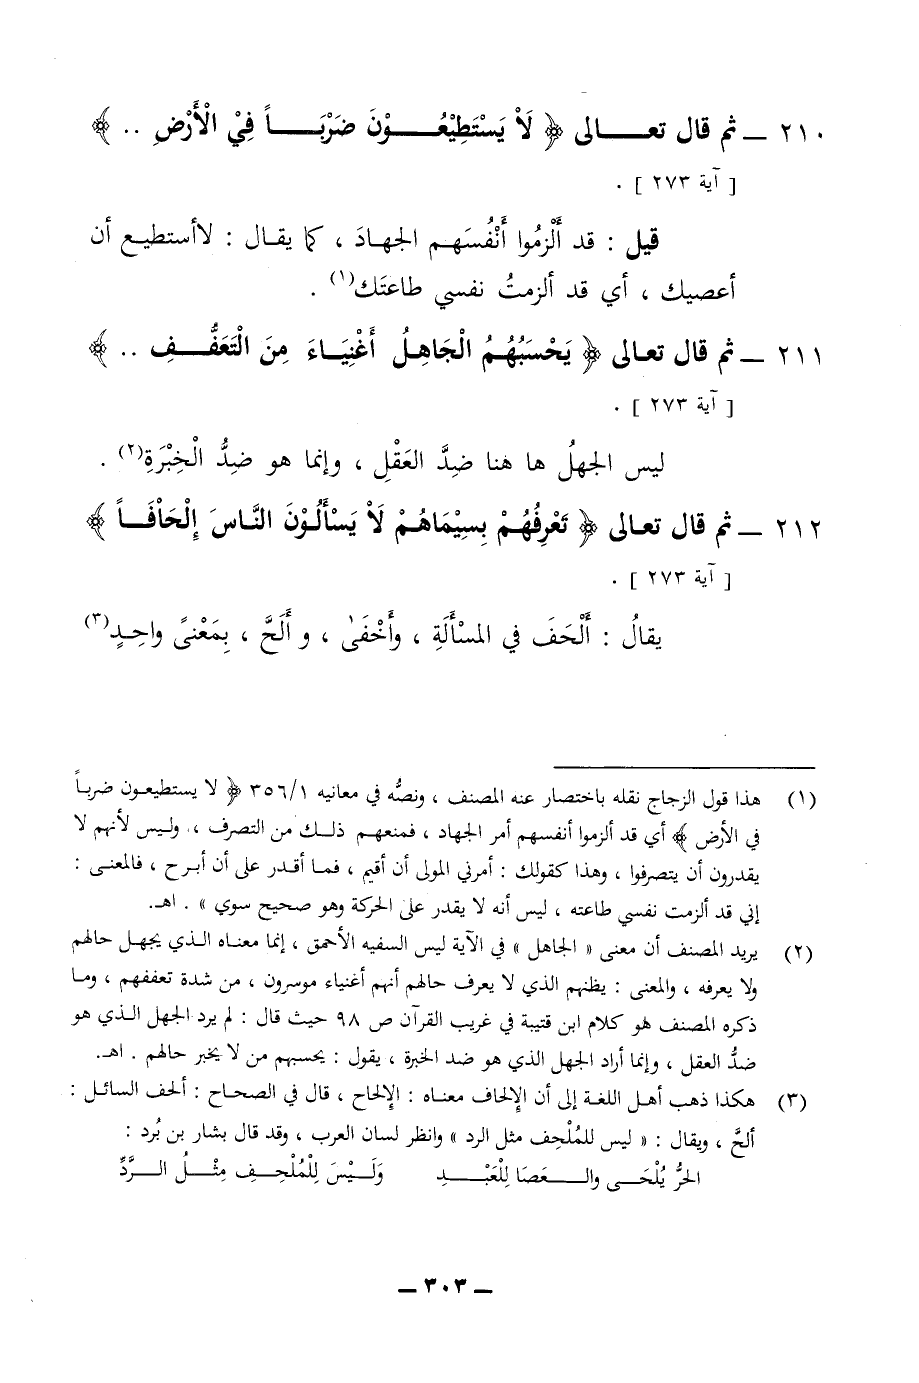 ٢١٠ ــ ثم قال تعــالى ﴿ لَاْ يَسْتَطِيْعُــوْنَ ضَرْبَــاً فِيْ الْأَرْضِ .. ﴾
[ آية ٢٧٣ ] .
قيل : قد أَلْزمُوا أَنْفُسَهـم الجهـادَ ، كما يقـال : لاأستطيـع أن
أعصيك ، أي قد ألزمتُ نفسي طاعتَك(١) .
٢١١ ــ ثم قال تعـالى ﴿ يَحْسَبُهُـمُ الْجَاهِـلُ أَغْنِيَـاءَ مِنَ الْتَعَفُّـفِ .. ﴾
[ آية ٢٧٣ ] .
ليس الجهلُ ها هنا ضِدَّ العَقْلِ ، وإنما هو ضِدُّ الْخِبْرَةِ(٢) .
٢١٢ ــ ثم قال تعـالى ﴿ تَعْرِفُهُـمْ بِسِيْمَاهُـمْ لَاْ يَسْأَلُـوْنَ النَّاسَ إِلْحَاْفَـاً ﴾
[ آية ٢٧٣ ] .
يقالُ : أَلْحَفَ في المسْأَلَةِ ، وأَحْفَىٰ ، و أَلَحَّ ، بِمَعْنىً واحِـدٍ(٣)
(١) هذا قول الزجاج نقله باختصار عنه المصنف ، ونصُّه في معانيه ٣٥٦/١ ﴿ لا يستطيعـون ضربـاً
في الأرض ﴾ أي قد ألزموا أنفسهم أمر الجهاد ، فمنعهـم ذلـك من التصرف ، وليس لأنهم لا
يقدرون أن يتصرفوا ، وهذا كقولك : أمرني المولى أن أقيم ، فمـا أقـدر على أن أبـرح ، فالمعنـى :
إني قد ألزمت نفسي طاعته ، ليس أنه لا يقدر على الحركة وهو صحيح سوي » . اهـ.
(٢) يريد المصنف أن معنى « الجاهل » في الآية ليس السفيه الأحمق ، إنما معنـاه الـذي يجهـل حالهم
ولا يعرفه ، والمعنى : يظنهم الذي لا يعرف حالهم أنهم أغنياء موسرون ، من شدة تعففهم ، ومـا
ذكره المصنف هو كلام ابن قتيبة في غريب القرآن ص ٩٨ حيث قال : لم يرد الجهل الـذي هو
ضدُّ العقل ، وإنما أراد الجهل الذي هو ضد الخبرة ، يقول : يحسبهم من لا يخبر حالهم . اهـ.
(٣) هكذا ذهب أهـل اللغـة إلى أن الإلحاف معنـاه : الإلحاح ، قال في الصحـاح : ألحف السائـل :
ألحَّ ، ويقال : « ليس للمُلْحِف مثل الرد » وانظر لسان العرب ، وقد قال بشار بن بُرد :
الحرُّ يُلْحَـى والــعَصَا لِلْعَبْــدِ وَلَـيْسَ لِلْمُلْحِـفِ مِثْـلُ الـرَّدِّ
ــ ٣٠٣ ــ